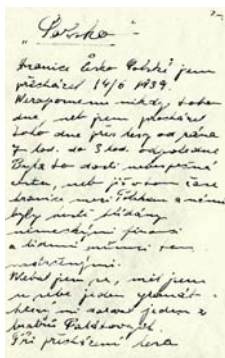 2.
"Polsko"
Hranice Česko Polské jsem
přecházel 14/6 1939.
Nezapomenu nikdy toho
dne, neb jsem procházel
toho dne přes lesy od rána
7 hod. do 3 hod. odpoledne
Byla to dosti nebezpečná
cesta, neb již v tom čase
hranice mezi Polskem a námi
byly hustě hlídány
německými financi
a lidmi
Nebál jsem se, měl jsem
u sebe jeden granát
který mi daroval jeden z
bratrů
Při přecházení lesa